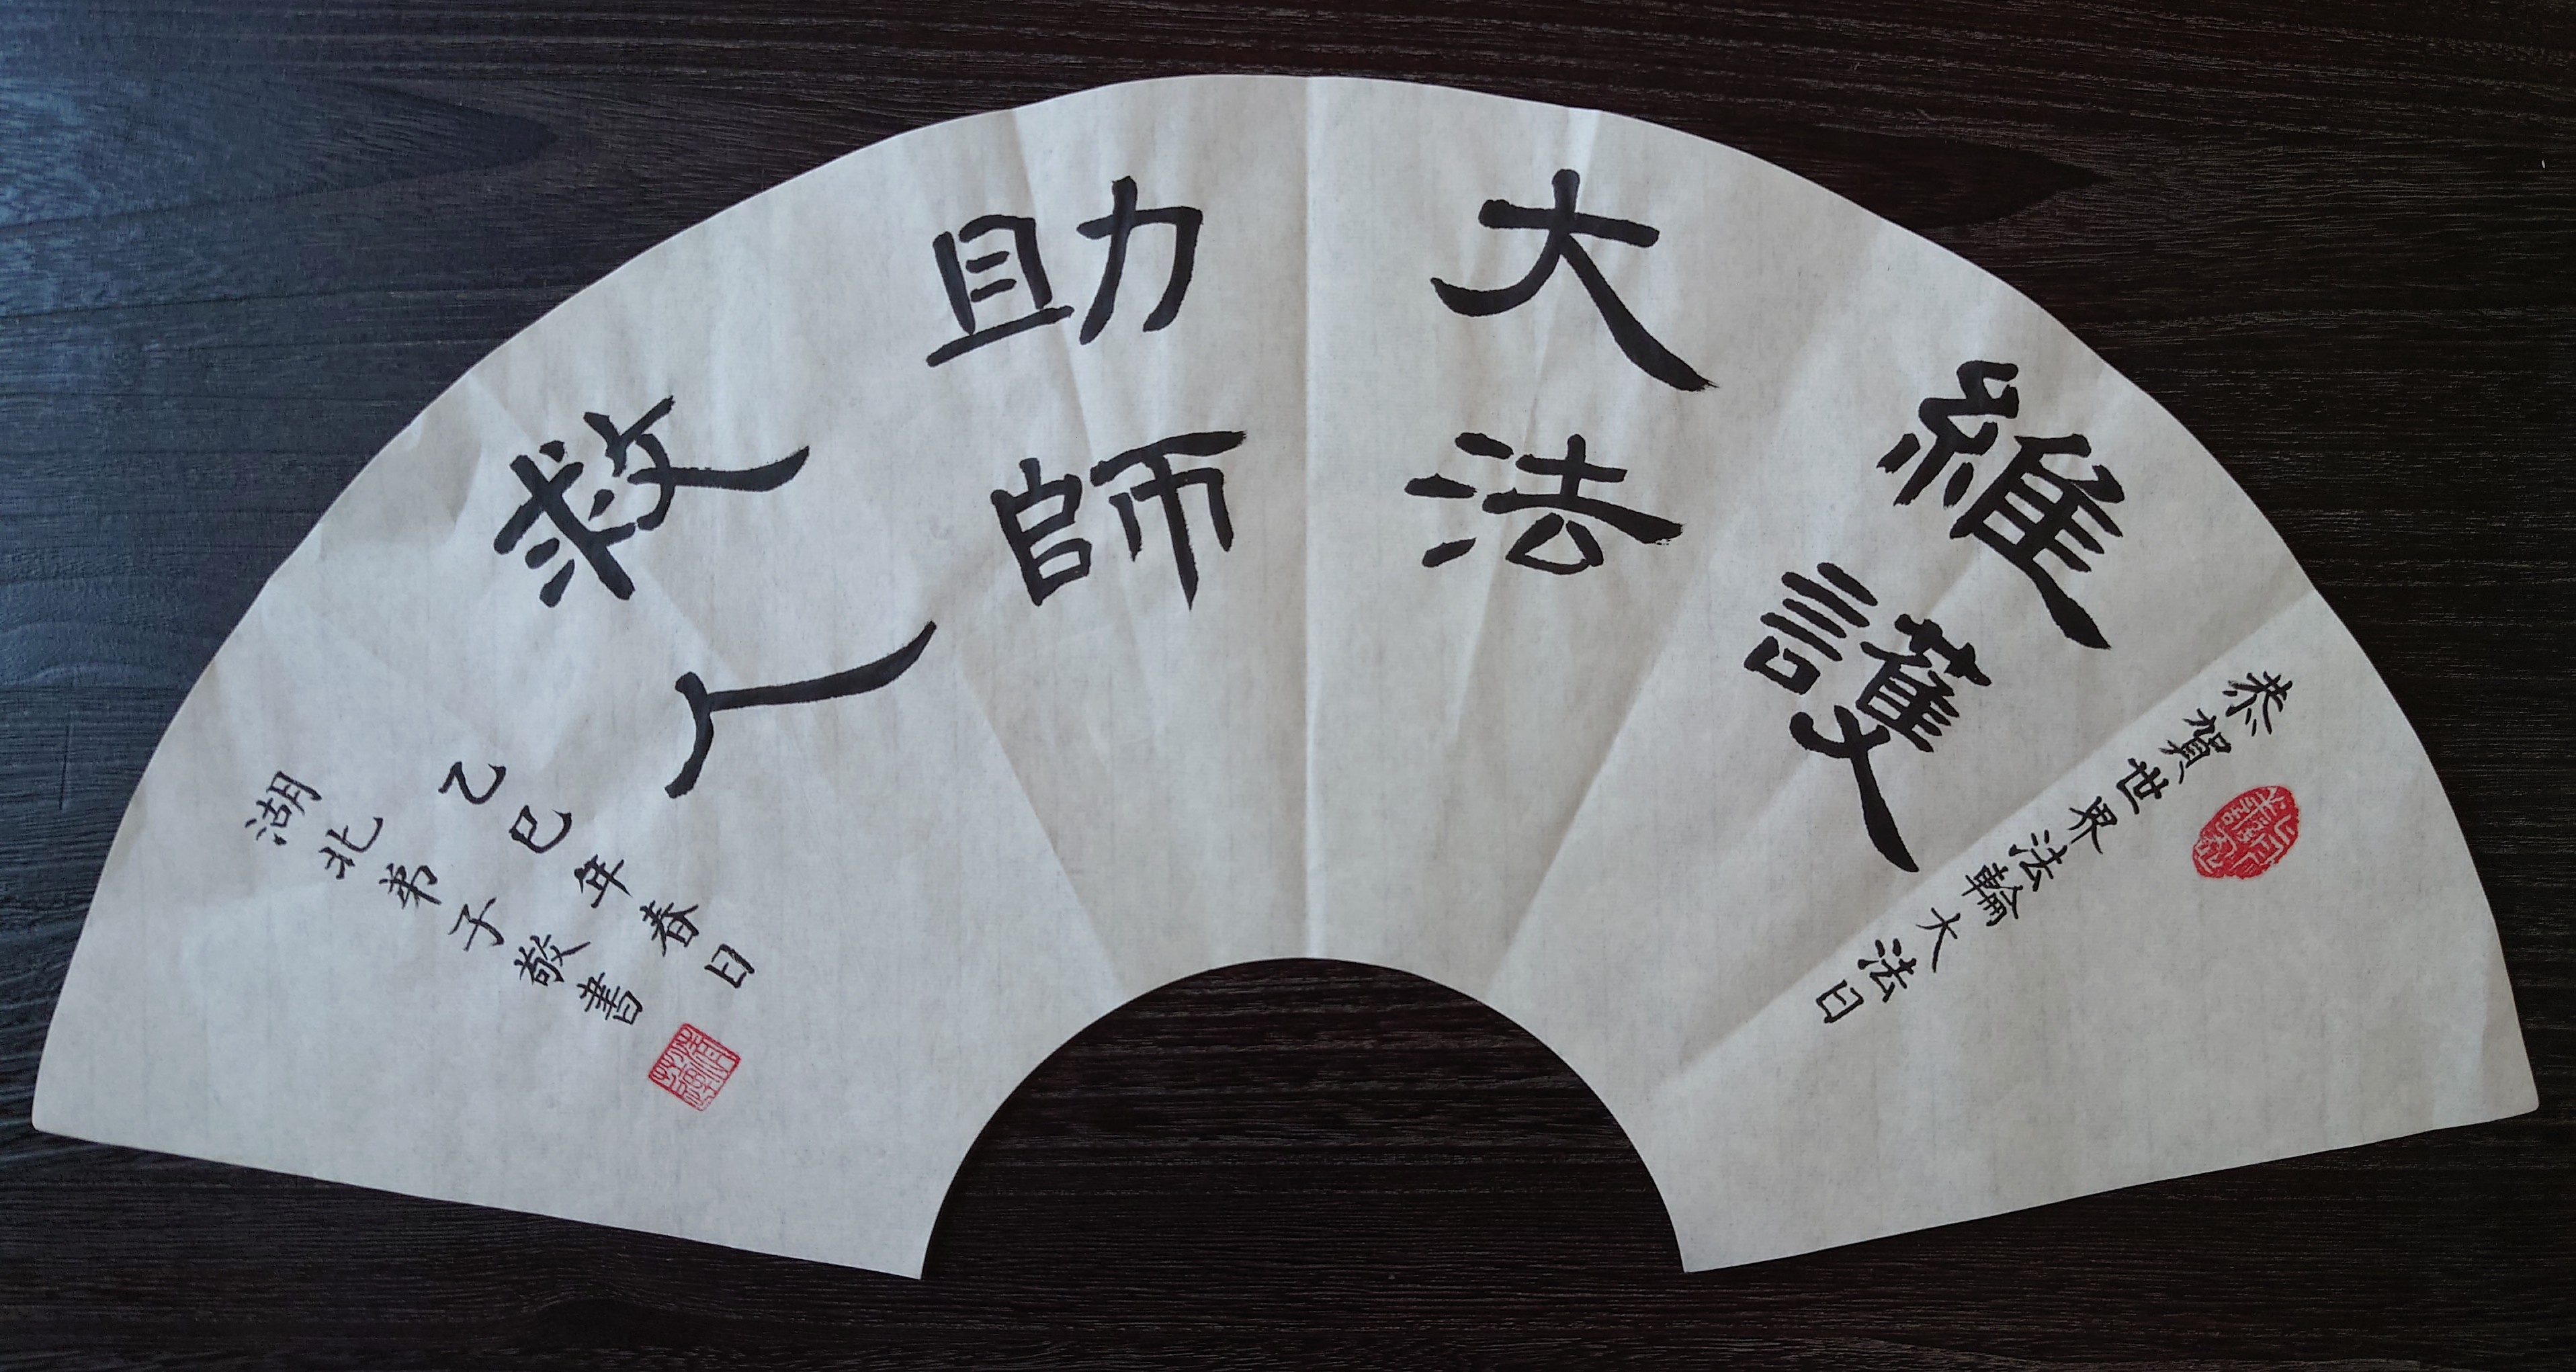 恭賀世界法輪大法日
維護
大法
助師
救人
乙巳年春日
湖北弟子敬書